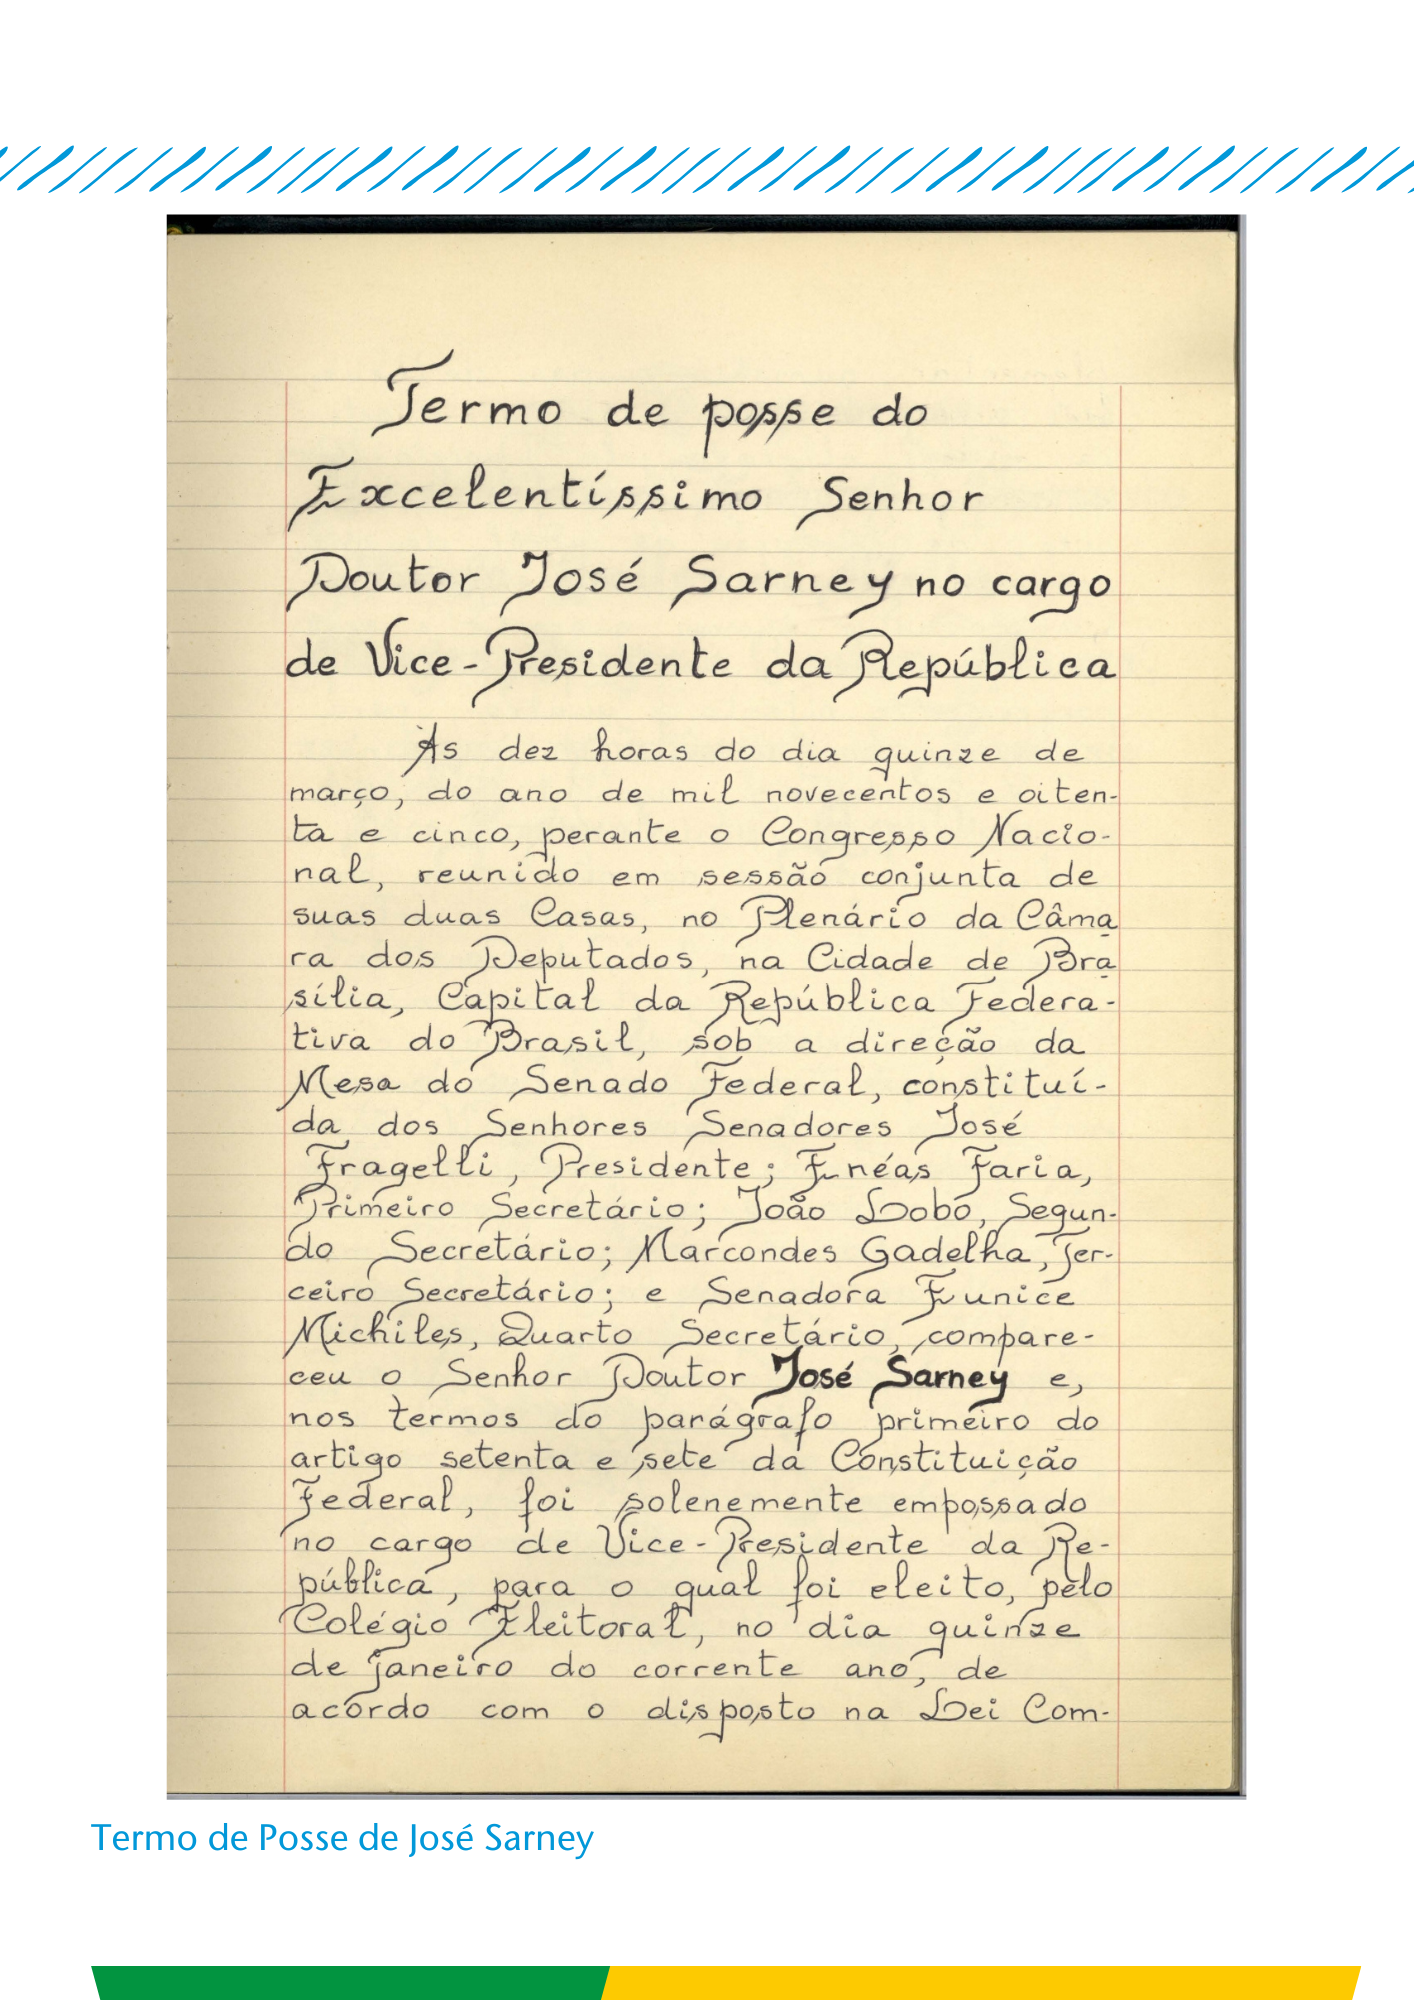 Termo de posse do
Excelentíssimo Senhor
Doutor José Sarney no cargo
de Vice-Presidente da República
Às dez horas do dia quinze de
março, do ano de mil novecentos e oiten-
ta e cinco, perante o Congresso Nacio-
nal, reunido em sessão conjunta de
suas duas Casas, no Plenário da Câma
ra dos Deputados, na Cidade de Bra
sília, Capital da República Federa-
tiva do Brasil, sob a direção da
Mesa do Senado Federal, constituí-
da dos Senhores Senadores José
Fragelli, Presidente; Enéas Faria,
Primeiro Secretário; João Lobo, Segun-
do Secretário; Marcondes Gadelha, Ter-
ceiro Secretário; e Senadora Eunice
Michiles, Quarto Secretário, compare-
ceu o Senhor Doutor José Sarney e,
nos termos do parágrafo primeiro do
artigo setenta e sete da Constituição
Federal, foi solenemente empossado
no cargo de Vice-Presidente da Re-
pública, para o qual foi eleito, pelo
Colégio Eleitoral, no dia quinze
de janeiro do corrente ano, de
acordo com o disposto na Lei Com-
Termo de Posse de José Sarney